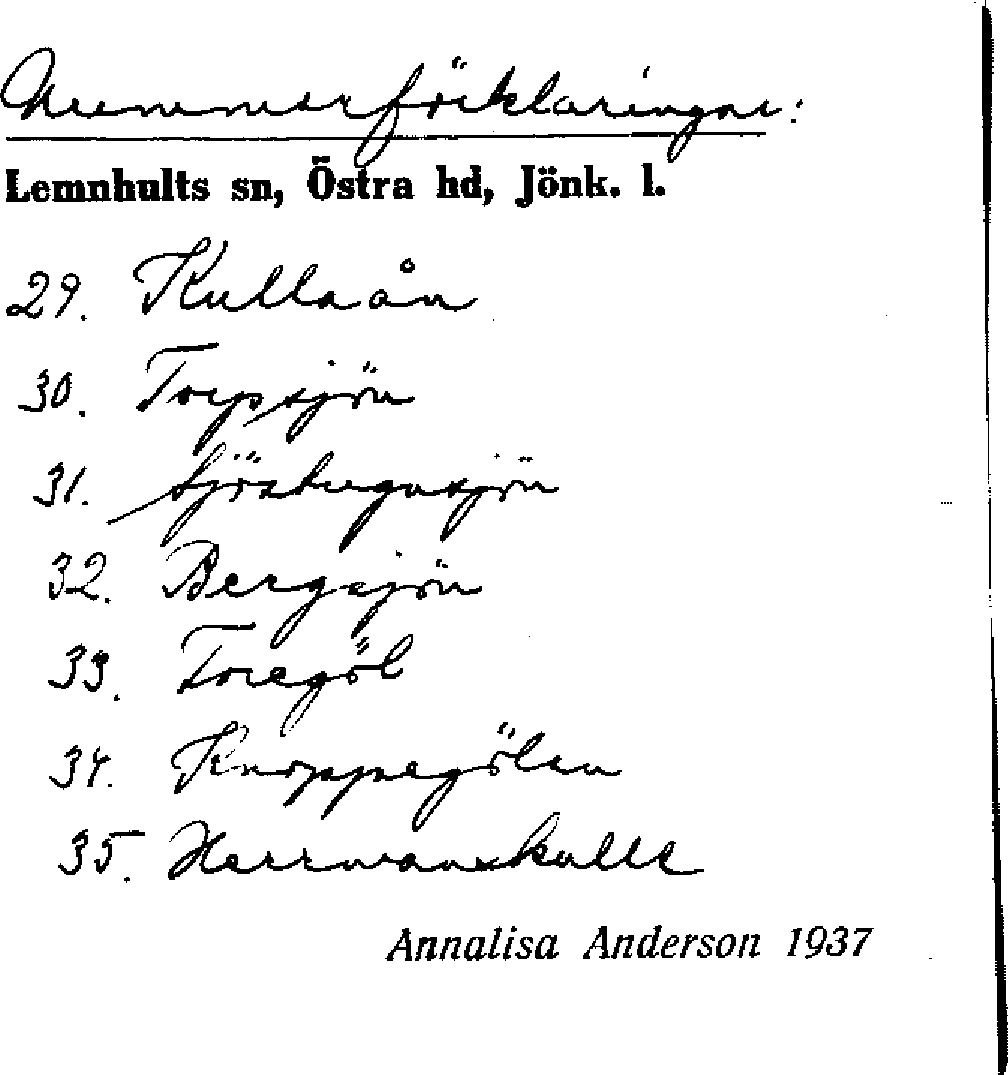 Nummerförklaringar:
Lemnhults sn, Östra hd, Jönk. l.
29. Kullaån
30. Torpsjön
31. Sjöstugusjön
32. Bergsjön
33. Toregöl
34. Knoppegölen
35. Herrmanskulle
Annalisa Anderson 1937